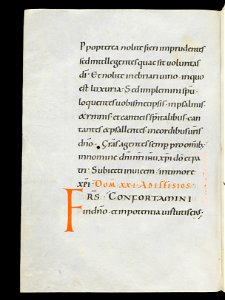 P popterea nolite fieri imprudentes
sed intellegentes quae sit voluntas
dī · Et nolite inebriari vino · inquo
est luxuria · Sed implemini spū
loquentes vobismetipsis · inpsalmis
& ymnis et canticis spiritalibus · can
tantes & psallentes incordibus vr̄is
dn̄o · Gr̄as agentes semp pro omib;
innomine dn̄i nr̄i ihū xp̄i dō et pa
tri · Subiecti invicem · intimore
xp̄i · DOM · XXI · AD EFESIOS ·
FRS · CONFORTAMINI
in dn̄o · et inpotentia virtutis eius ·